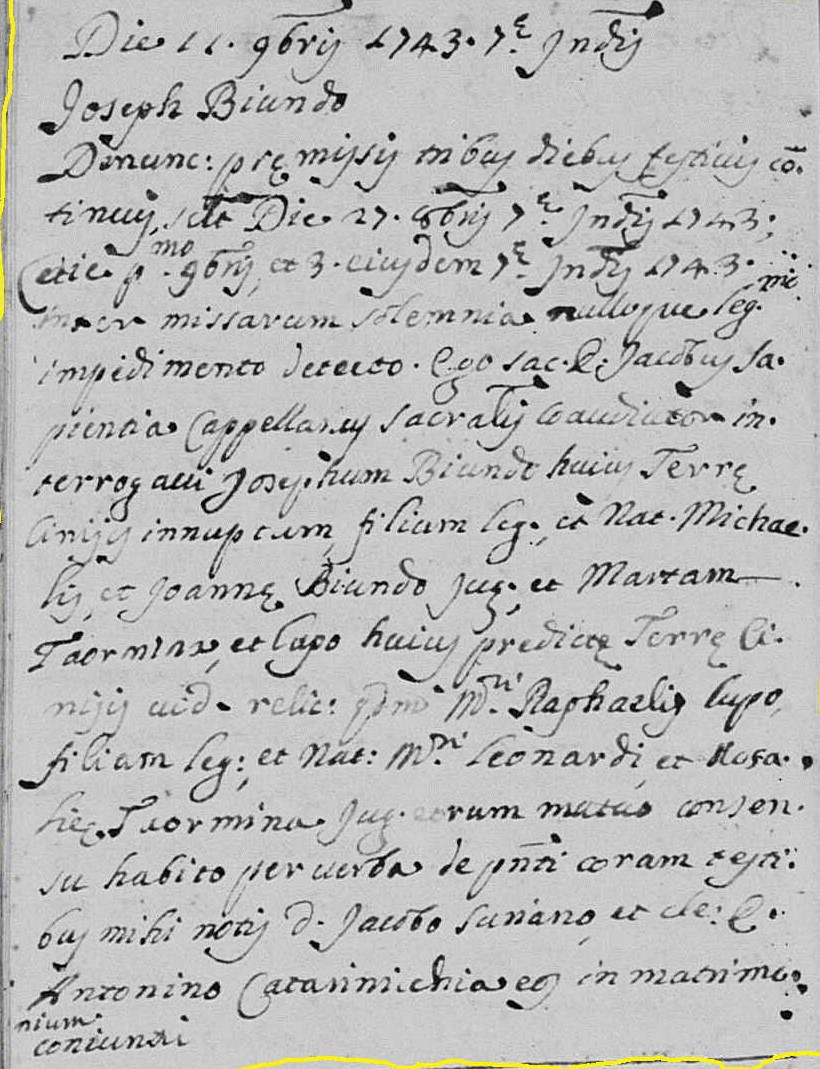 Die 11. 9bris 1743. 7ę Indis
Joseph Biundo
Dnunc: pręmissis tribus diebus festivis cō.
tinuis, scilt Die 27. 8bris 7ę Indis 1743;
et die pmo 9bris, et 3. eiusdem 7ę Indis 1743.
inter missarum solemnia nulloque leg.mo
impedimento detecto. Ego sac. D: Jacobus Sa.
pientia Cappellanus sacralis Coaudiutor in.
terrogavi Josephum Biundo huius Terrę
Cinisis innuptum, filium leg:, et Nat. Michae.
lis, et Joannę Biundo jug:, et Martam
Taormina, et Lupo huius predictę Terrę Ci.
nisis vid. relic: qdm Mri. Raphaelis Lupo,
filiam leg:, et Nat: Mri Leonardi, et Rosa.
lię Taormina jug. eorum mutuo consen.
su habito per verba de pnti coram testi.
bus mihi notis D. Jacobo Suriano, et cle: D.
Antonino Catarinicchia eos in matrimo.
nium
coniunxi